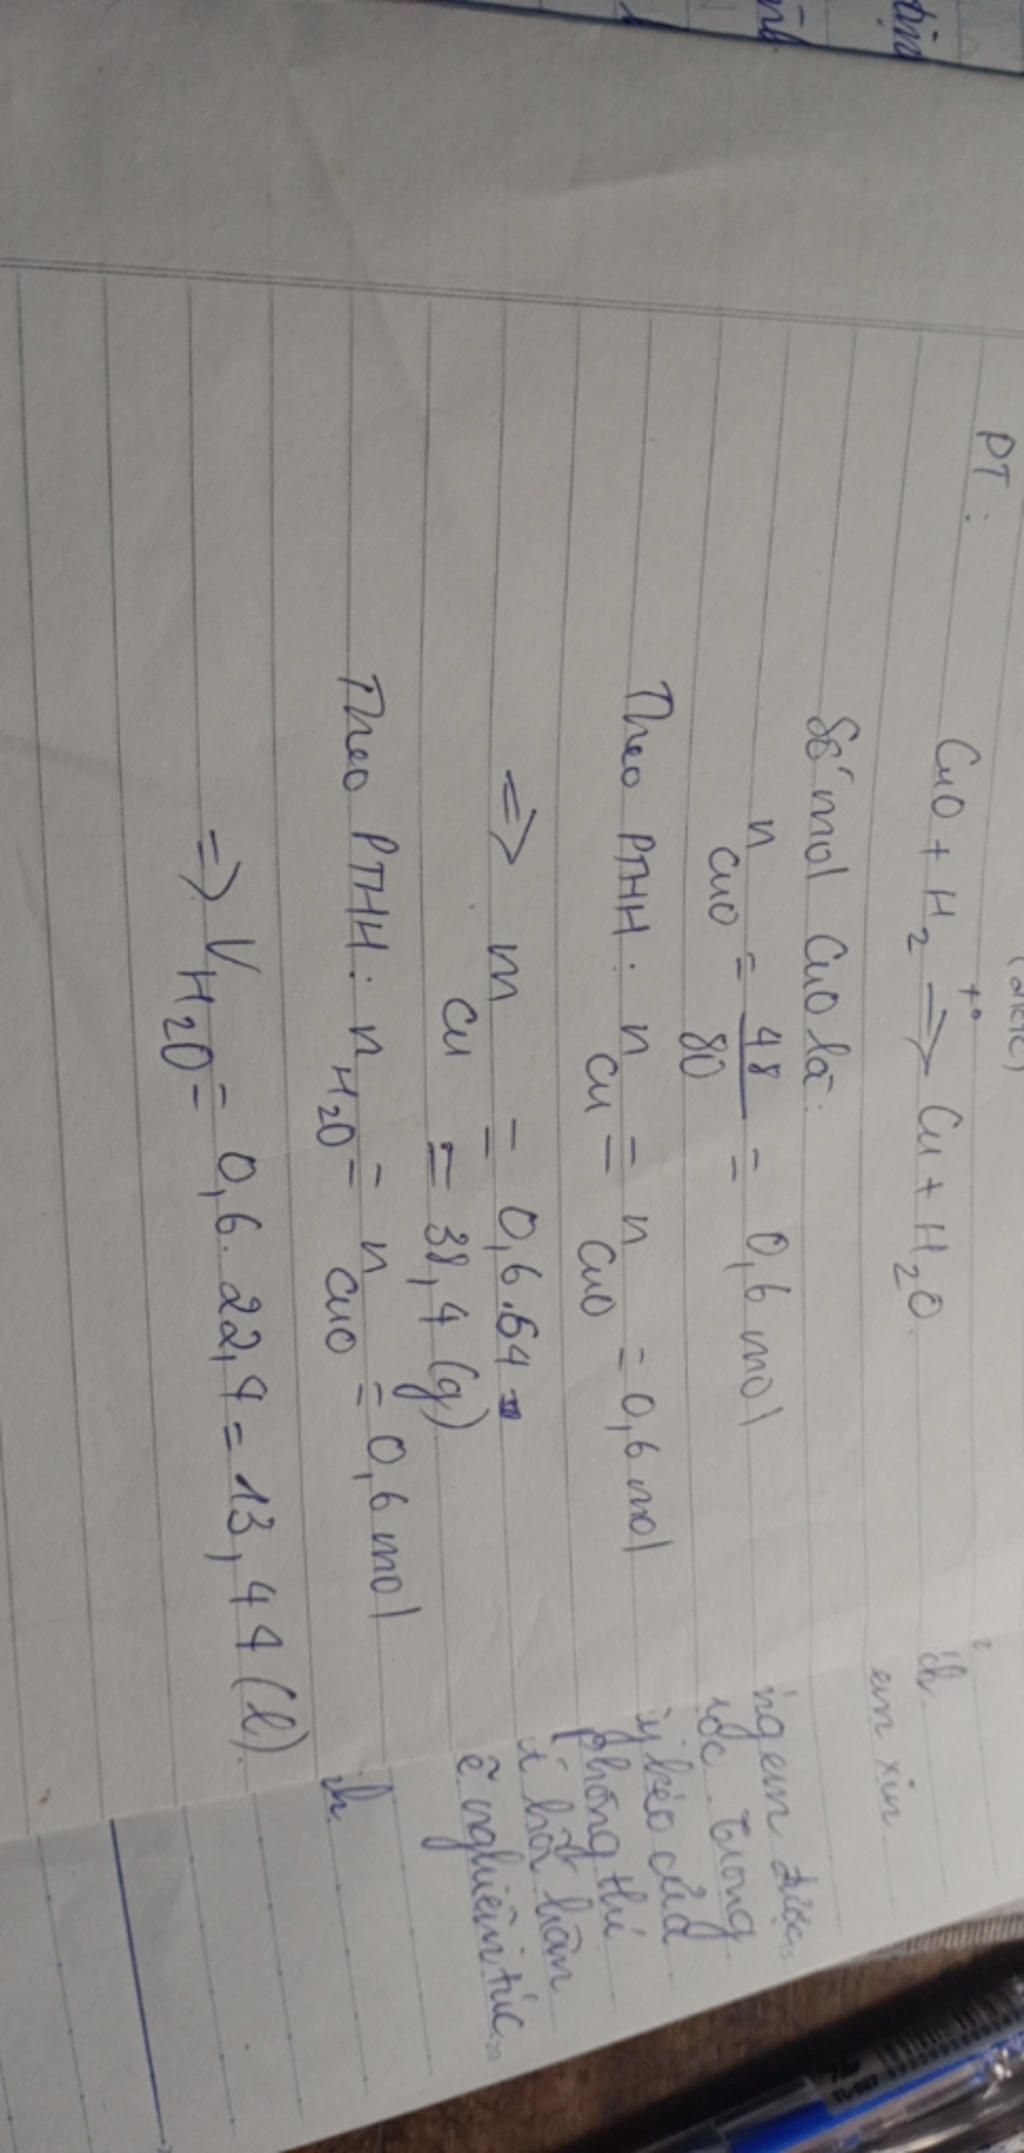 (đktc)
PT :
CuO + H₂ =t°=> Cu + H₂O
Số mol CuO là:
n CuO = 48/80 = 0,6 mol
Theo PTHH: n Cu = n CuO = 0,6 mol
=> m Cu = 0,6.64
= 38,4 (g)
Theo PTHH: n H₂O = n CuO = 0,6 mol
=> V H₂O = 0,6. 22,4 = 13,44 (l).
em xin
ng em được
trong
của
phòng thí
hơi hàn
nghiêm túc